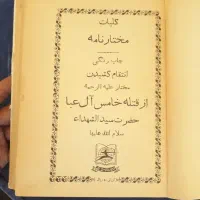 کلیات
مختارنامه
چاپ رنگی
انتقام کشیدن
مختار علیه الرحمه
از قتله خامس آل عبا
حضرت سید الشهداء
سلام الله علیها